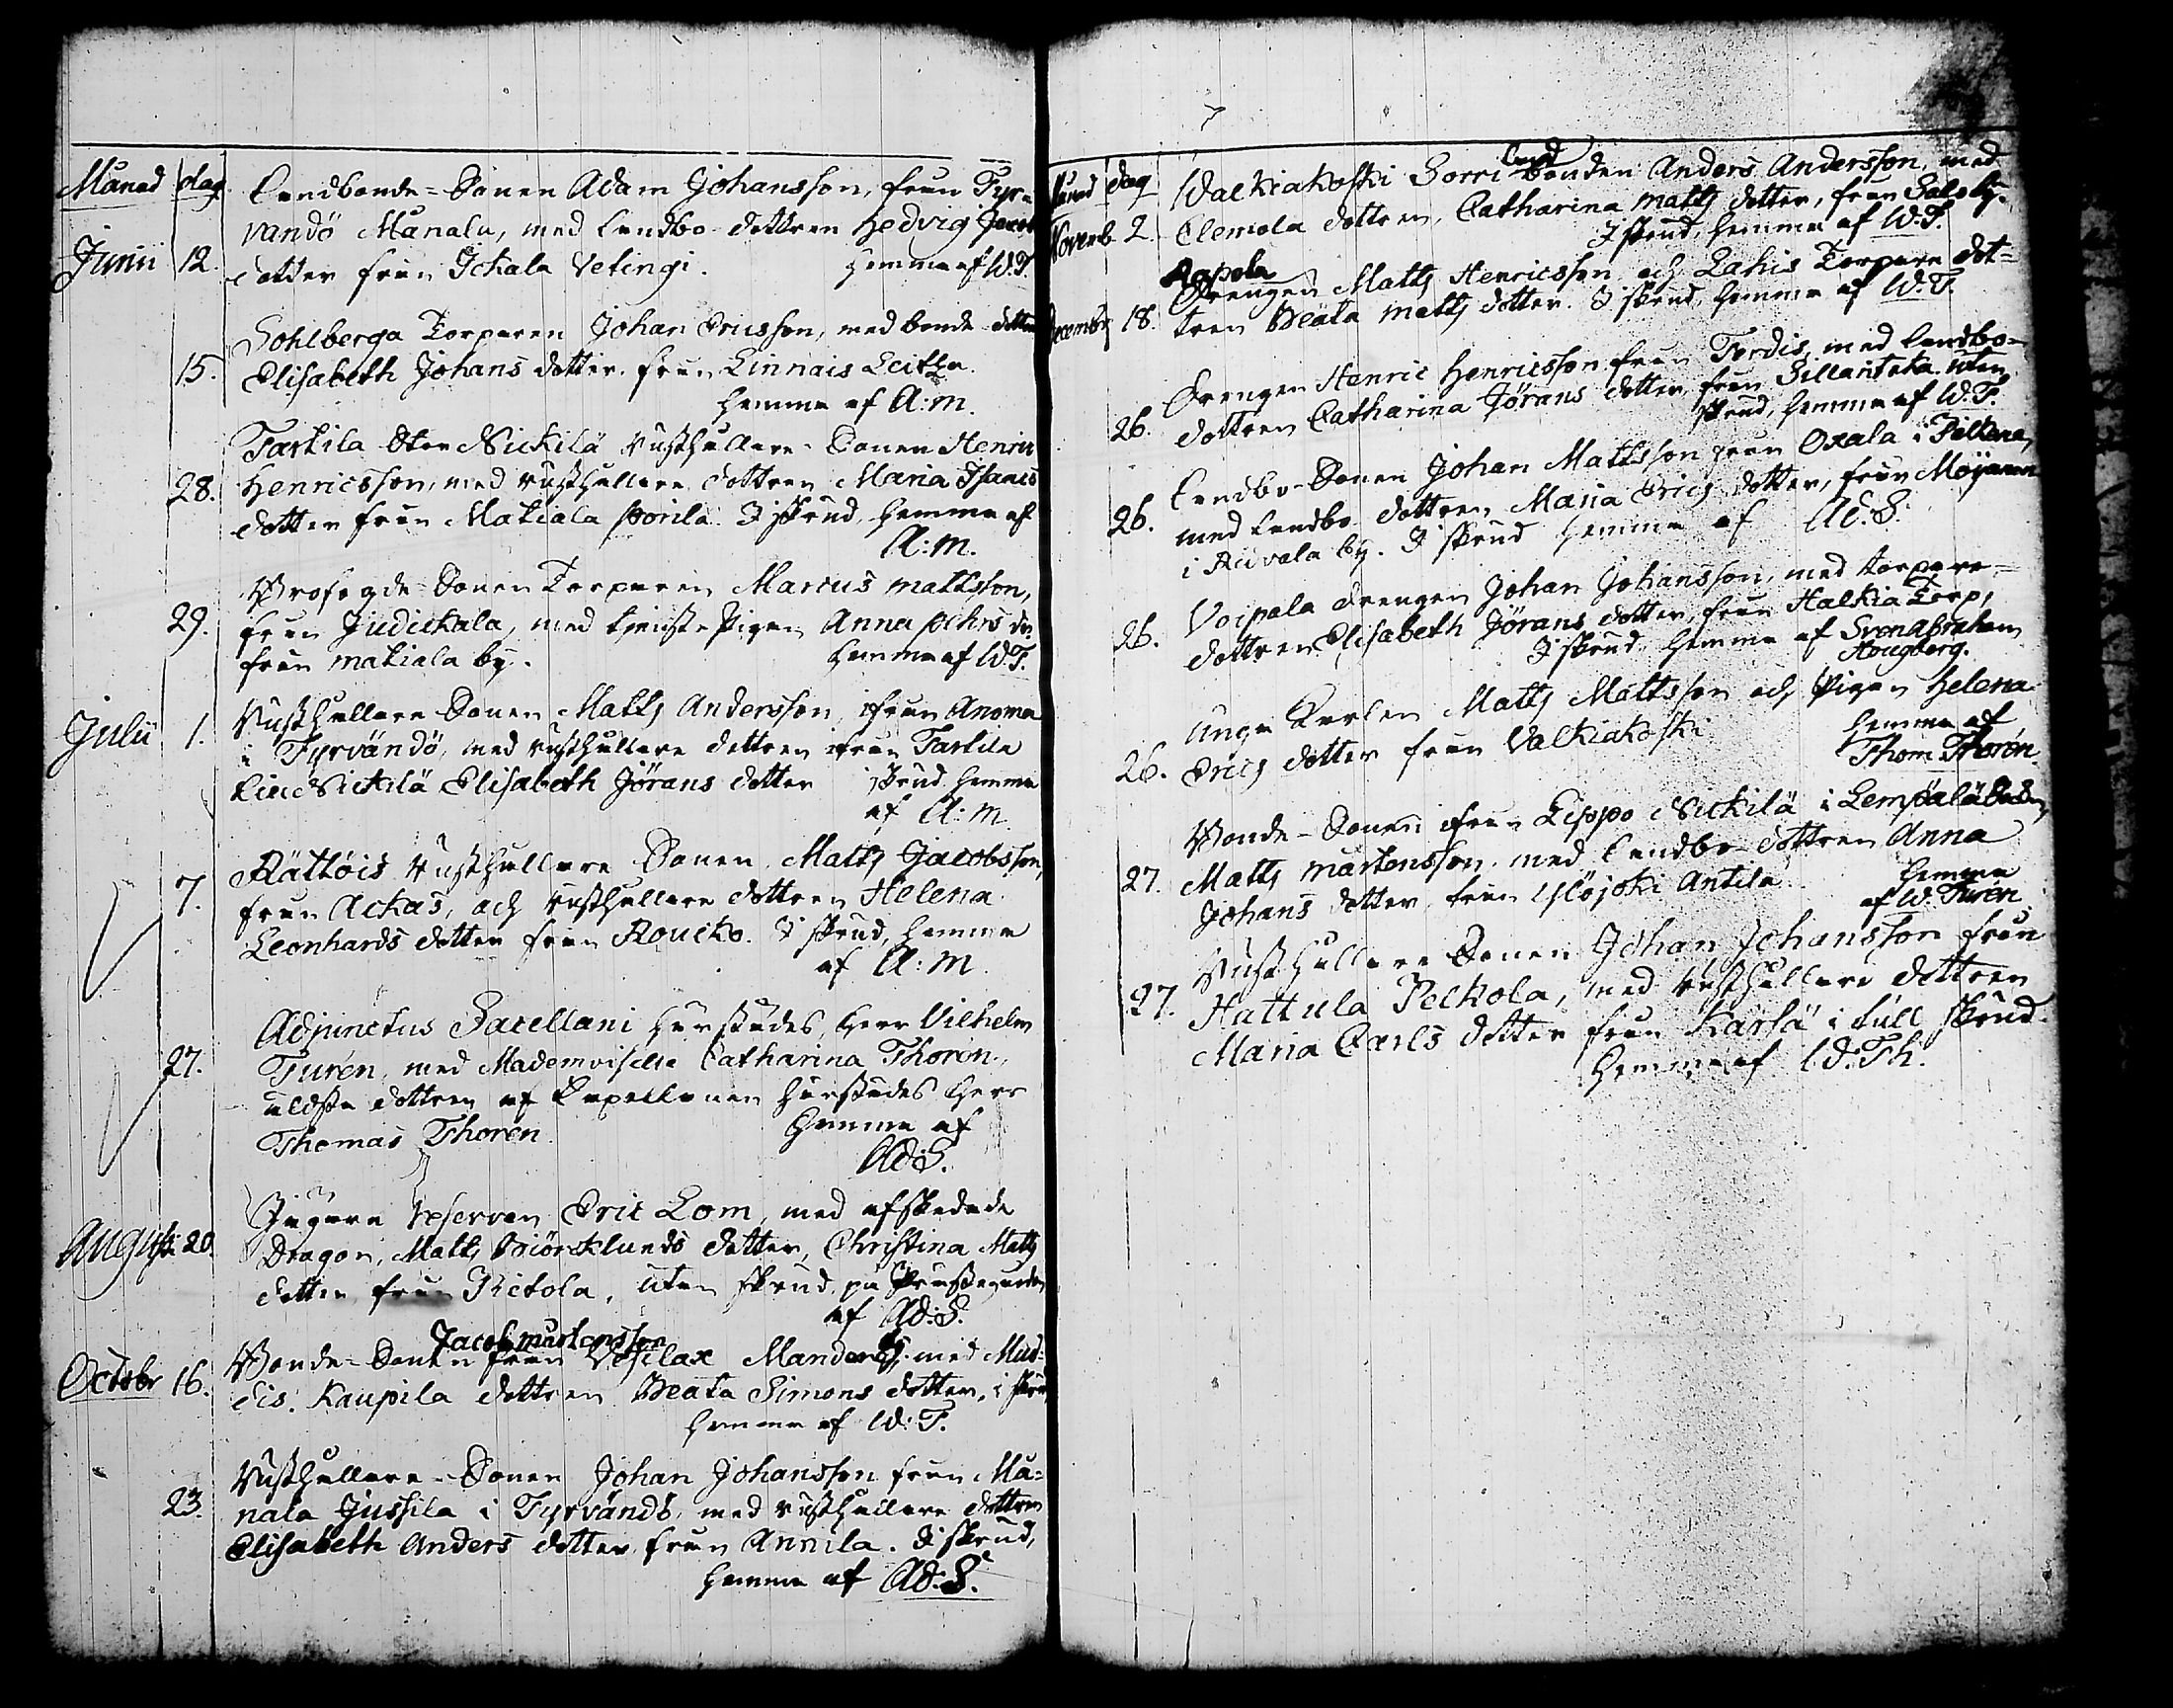 Månad dag
Landbonde=Sonen Adam Johansson, från Tyr=
vändö Mänälu, med Landbo dottren Hedvig Jacobs
Junii 12. dotter från Ickala Vetingi. Hemma af W.T.
Sohlberga Torparen Johan Ericsson, med bonde dottren
15. Elisabeth Johans dotter. från Linnais Leikka.
Hemma af A:m.
Tarkila Nickilä Rusthållare=Sonen Henric
28. Henricsson, med rusthållare dottren Maria Isaacs
dotter från Makiala Porila. I skrud, hemma af
A:m.
Profogde=Sonen Torparen Marcus mattsson,
29. från Judickala, med tjenste Pigan Anna
från makiala by. Hemma af W.T.
Julii 1. Rusthållare Sonen Matts Andersson, ifrån Anoma
i Tyrvändö, med rusthållare dottren ifrån Tarkila
Nickilä Elisabeth Jörans dotter i skrud hemma
af A:m.
Rättöis rusthållare Sonen Matts Jacobsson,
7. från Ackas, och rusthållare dottren Helena
Leonhards dotter från Roucko. I skrud, hemma
af A:m.
Adjunctus Sacellani Herr Vilhelm
27. Turén, med Mademoiselle Catharina Thorén,
äldsta dottren af Capellanen Herr
Thomas Thorén. Hemma af
Ad:S.
Jägare reserven Eric Lom, med afskedade
Augusti 20. Dragon, Matts Biörcklunds dotter, Christina Matts
dotter från Ritola, utan skrud på Prästegården
af Ad:S.
Jacob mårtensson
Bonde=Sonen från Vesilax Manderby med
Octobr 16. dis Kaupila dottren Beata Simons dotter, i skrud
hemma af W:T.
Rusthållare=Sonen Johan Johansson från Mä=
23. nälä Jussila i Tyrvändö, med rusthållare dottren
Elisabeth Anders dotter från Annila. I skrud,
hemma af Ad:S.
Månad dag
Land
Walkiakoski Sorri bonden Anders Andersson, med
Novemb. 2. Clemola dottren, Catharina matts dotter, från
I skrud, hemma af W.T.
Rapola
Drengen Matts Henricsson och Lahis Torpare dot=
Decembr 18. tren Beata matts dotter. I skrud, hemma af W.T.
Drengen Henric Henricsson från Tordis, med landbo=
26. dottren Catharina Jörans dotter från Sillantaka utan
skrud, hemma af W.T.
Landbo=Sonen Johan Mattsson från Oxala i Pälkäne,
26. med landbo dottren Maria Erics dotter, från Möijanen
i Ridvala by. I skrud hemma af Ad.S.
Voipala drengen Johan Johansson, med torpare=
26. dottren Elisabeth Jörans dotter, från Halkia Torp,
I skrud hemma af Sven Abraham
Hougberg.
Unga Karlen Matts Mattsson och Pigan Helena
26. Erics dotter från Valkiakoski hemma af
Thom. Thorén.
Bonde=Sonen ifrån Lippo Nickilä i Lempälä Socken,
27. Matts mårtensson, med landbo dottren Anna
Johans dotter, från Ylöjoki Antila hemma
af W. Turén
Rusthållare Sonen Johan Johansson från
27. Hattula Pelkola, med rusthållare dottren
Maria Carls dotter från Kärlä i full skrud
hemma af W:Th.